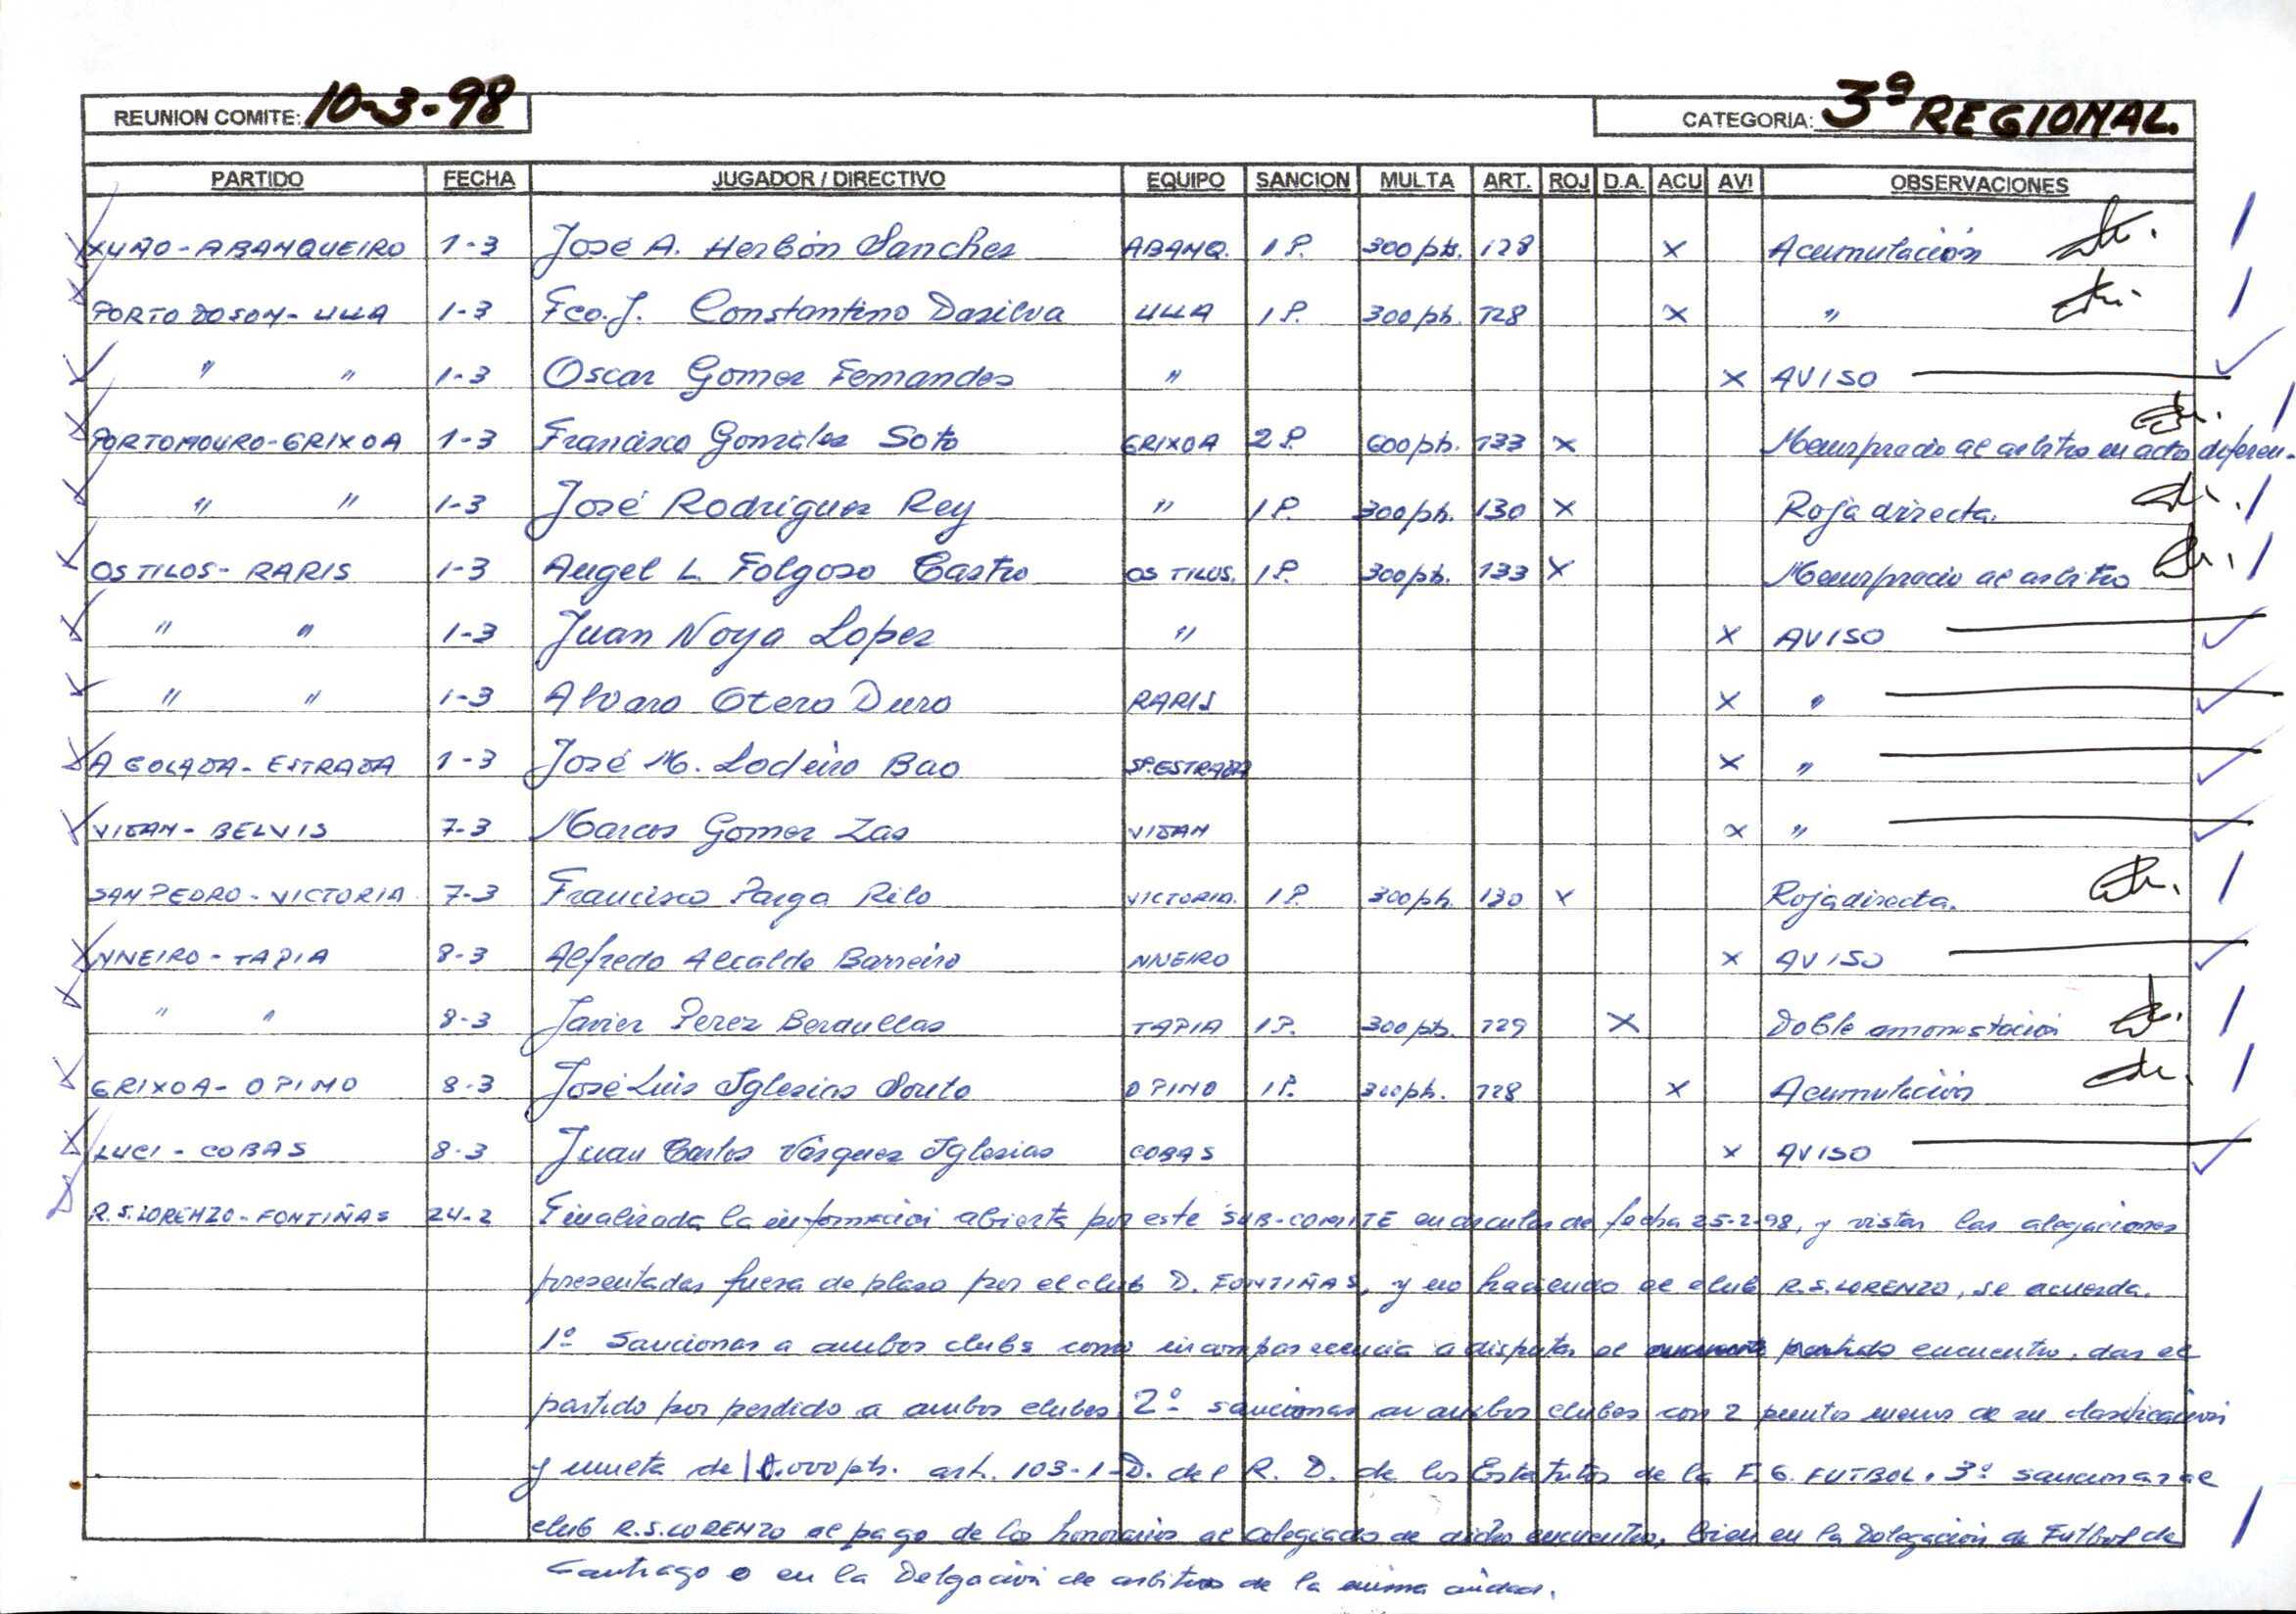 REUNION COMITE: 10-3-98 CATEGORIA: 3ª REGIONAL.
PARTIDO FECHA JUGADOR / DIRECTIVO EQUIPO SANCION MULTA ART. ROJ D.A. ACU AVI OBSERVACIONES
XUÑO - ABANQUEIRO 1-3 José A. Herbón Sanchez ABANQ. 1 P. 300 pts. 128 x Acumulación
PORTO DO SON - ULLA 1-3 Fco. J. Constantino Dasilva ULLA 1 P. 300 pts. 128 x "
" " 1-3 Oscar Gomez Fernandez " x AVISO
PORTOMOURO - GRIXOA 1-3 Francisco González Soto GRIXOA 2 P. 600 pts. 133 x Menosprecio al arbitro en actos diferen-
" " 1-3 José Rodriguez Rey " 1 P. 300 pts. 130 x Roja directa.
OS TILOS - RARIS 1-3 Angel L. Folgoso Castro OS TILOS. 1 P. 300 pts. 133 x Menosprecio al arbitro
" " 1-3 Juan Noya Lopez " x AVISO
" " 1-3 Alvaro Otero Duro RARIS x "
A GOLADA - ESTRADA 1-3 José M. Lodeiro Bao SP. ESTRADA x "
VIDAN - BELVIS 7-3 Marcos Gomez Zas VIDAN x "
SAN PEDRO - VICTORIA 7-3 Francisco Parga Rilo VICTORIA. 1 P. 300 pts. 130 x Roja directa.
NNEIRO - TAPIA 8-3 Alfredo Alcalde Barreiro NNEIRO x AVISO
" " 8-3 Javier Perez Berdullas TAPIA 1 P. 300 pts. 129 x Doble amonestación
GRIXOA - O PINO 8-3 José Luis Iglesias Souto O PINO 1 P. 300 pts. 128 x Acumulación
LUCI - COBAS 8-3 Juan Carlos Vásquez Iglesias COBAS x AVISO
R. S. LORENZO - FONTIÑAS 24-2 Finalizada la información abierta por este SUB-COMITE en circular de fecha 25-2-98, y vistas las alegaciones
presentadas fuera de plazo por el club D. FONTIÑAS, y no haciendo el club R.S. LORENZO, se acuerda.
1º Sancionar a ambos clubs como incomparecencia a disputar el partido encuentro, dar el
partido por perdido a ambos clubes 2º sancionar a ambos clubes con 2 puntos menos de su clasificación
y multa de 10.000 pts. art. 103-1-D. del R. D. de los Estatutos de la F. G. FUTBOL. 3º sancionar al
club R.S. LORENZO al pago de los honorarios al colegiado de dicho encuentro, bien en la Delegación de Futbol de
Santiago o en la Delgación de arbitros de la misma ciudad.